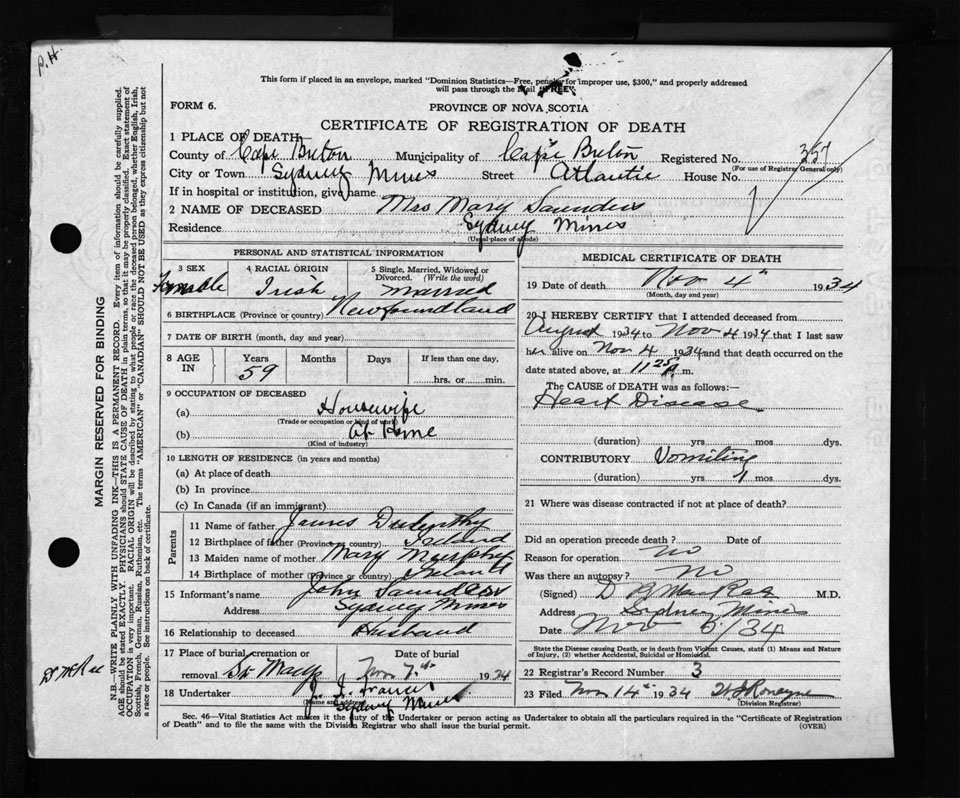 P.H.
This form if placed in an envelope, marked "Dominion Statistics—Free, penalty for improper use, $300," and properly addressed
will pass through the Mail "FREE".
FORM 6.
PROVINCE OF NOVA SCOTIA
CERTIFICATE OF REGISTRATION OF DEATH
1 PLACE OF DEATH
County of Cape Breton Municipality of Cape Breton Registered No. 357
(For use of Registrar General only)
City or Town Sydney Mines Street Atlantic House No.
If in hospital or institution, give name
2 NAME OF DECEASED Mrs Mary Saunders
Residence Sydney Mines
(Usual place of abode)
PERSONAL AND STATISTICAL INFORMATION
3 SEX Female
4 RACIAL ORIGIN Irish
5 Single, Married, Widowed or Divorced. (Write the word) Married
6 BIRTHPLACE (Province or country) Newfoundland
7 DATE OF BIRTH (month, day and year)
8 AGE IN Years 59 Months Days If less than one day, hrs. or min.
9 OCCUPATION OF DECEASED
(a) Housewife
(Trade or occupation or kind of work)
(b) At Home
(Kind of industry)
10 LENGTH OF RESIDENCE (in years and months)
(a) At place of death
(b) In province
(c) In Canada (if an immigrant)
Parents
11 Name of father James
12 Birthplace of father (Province or country) Ireland
13 Maiden name of mother Mary Murphy
14 Birthplace of mother (Province or country) Ireland
15 Informant's name John Saunders
Address Sydney Mines
16 Relationship to deceased Husband
17 Place of burial, cremation or removal St Marys Date of burial Nov 7th 1934
18 Undertaker J. J. Francis
(Name and address)
Sydney Mines
MEDICAL CERTIFICATE OF DEATH
19 Date of death Nov 4th 1934
(Month, day and year)
20 I HEREBY CERTIFY that I attended deceased from
August 1934 to Nov 4 1934 that I last saw
her alive on Nov 4 1934 and that death occurred on the
date stated above, at 11 25 m.
The CAUSE OF DEATH was as follows:—
Heart Disease
(duration) yrs mos dys.
CONTRIBUTORY Vomiting
(duration) yrs mos dys.
21 Where was disease contracted if not at place of death?
Did an operation precede death? Date of
Reason for operation no
Was there an autopsy? no
(Signed) D A MacRae M.D.
Address Sydney Mines
Date Nov 5/34
State the Disease causing Death, or in death from Violent Causes, state (1) Means and Nature
of Injury, (2) whether Accidental, Suicidal or Homicidal.
22 Registrar's Record, Number 3
23 Filed Nov 14th 1934
(Division Registrar)
Sec. 46—Vital Statistics Act makes it the duty of the Undertaker or person acting as Undertaker to obtain all the particulars required in the "Certificate of Registration
of Death" and to file the same with the Division Registrar who shall issue the burial permit.
(OVER)
MARGIN RESERVED FOR BINDING
N.B.—WRITE PLAINLY WITH UNFADING INK—THIS IS A PERMANENT RECORD. Every item of information should be carefully supplied.
AGE should be stated EXACTLY. PHYSICIANS should STATE CAUSE OF DEATH in plain terms, so that it may be properly classified. Exact statement of
OCCUPATION is very important. RACIAL ORIGIN will be described by stating to what people or race the deceased person belonged, whether English, Irish,
Scottish, French, German, Russian, Ruthenian, etc. The terms "AMERICAN" or "CANADIAN" SHOULD NOT BE USED as they express citizenship but not
a race or people. See instructions on back of certificate.